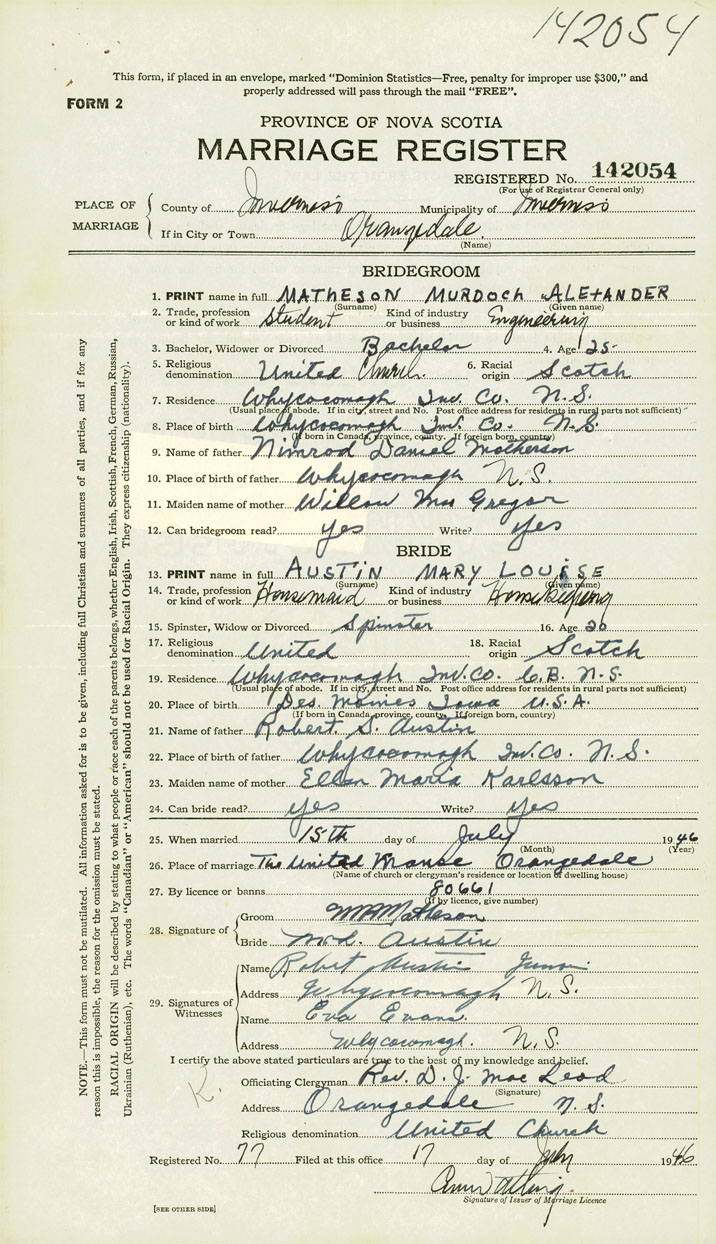 142054
This form, if placed in an envelope, marked "Dominion Statistics—Free, penalty for improper use $300," and
properly addressed will pass through the mail "FREE".
FORM 2
PROVINCE OF NOVA SCOTIA
MARRIAGE REGISTER
REGISTERED No. 142054
(For use of Registrar General only)
PLACE OF MARRIAGE
County of Inverness Municipality of Inverness
If in City or Town Orangedale
(Name)
BRIDEGROOM
1. PRINT name in full MATHESON MURDOCH ALEXANDER
(Surname) (Given name)
2. Trade, profession or kind of work Student Kind of industry or business Engineering
3. Bachelor, Widower or Divorced Bachelor 4. Age 25
5. Religious denomination United Church 6. Racial origin Scotch
7. Residence Whycocomagh Inv. Co. N.S.
(Usual place of abode. If in city, street and No. Post office address for residents in rural parts not sufficient)
8. Place of birth Whycocomagh Inv. Co. N.S.
(If born in Canada, province, county. If foreign born, country)
9. Name of father Nimrod Daniel Matherson
10. Place of birth of father Whycocomagh N.S.
11. Maiden name of mother Willow Mac Gregor
12. Can bridegroom read? yes Write? yes
BRIDE
13. PRINT name in full AUSTIN MARY LOUISE
(Surname) (Given name)
14. Trade, profession or kind of work Housemaid Kind of industry or business Housekeeping
15. Spinster, Widow or Divorced Spinster 16. Age 20
17. Religious denomination United 18. Racial origin Scotch
19. Residence Whycocomagh Inv. Co. C.B. N.S.
(Usual place of abode. If in city, street and No. Post office address for residents in rural parts not sufficient)
20. Place of birth Des Moines Iowa U.S.A.
(If born in Canada, province, county. If foreign born, country)
21. Name of father Robert S. Austin
22. Place of birth of father Whycocomagh Inv. Co. N.S.
23. Maiden name of mother Ellen Maria Karlsson
24. Can bride read? yes Write? yes
25. When married 15th day of July 1946
(Month) (Year)
26. Place of marriage The United Manse Orangedale
(Name of church or clergyman's residence or location of dwelling house)
27. By licence or banns 80661
(If by licence, give number)
28. Signature of
Groom M A Matheson
Bride M. L. Austin
29. Signatures of Witnesses
Name Robert Austin Junior
Address Whycocomagh N.S.
Name Eva Evans
Address Whycocomagh. N.S.
I certify the above stated particulars are true to the best of my knowledge and belief.
K.
Officiating Clergyman Rev. D. J. Mac Leod
(Signature)
Address Orangedale N.S.
Religious denomination United Church
Registered No. 77 Filed at this office 17 day of July 1946
Signature of Issuer of Marriage Licence
[SEE OTHER SIDE]
NOTE.—This form must not be mutilated. All information asked for is to be given, including full Christian and surnames of all parties, and if for any
reason this is impossible, the reason for the omission must be stated.
RACIAL ORIGIN will be described by stating to what people or race each of the parents belongs, whether English, Irish, Scottish, French, German, Russian,
Ukrainian (Ruthenian), etc. The words "Canadian" or "American" should not be used for Racial Origin. They express citizenship (nationality).